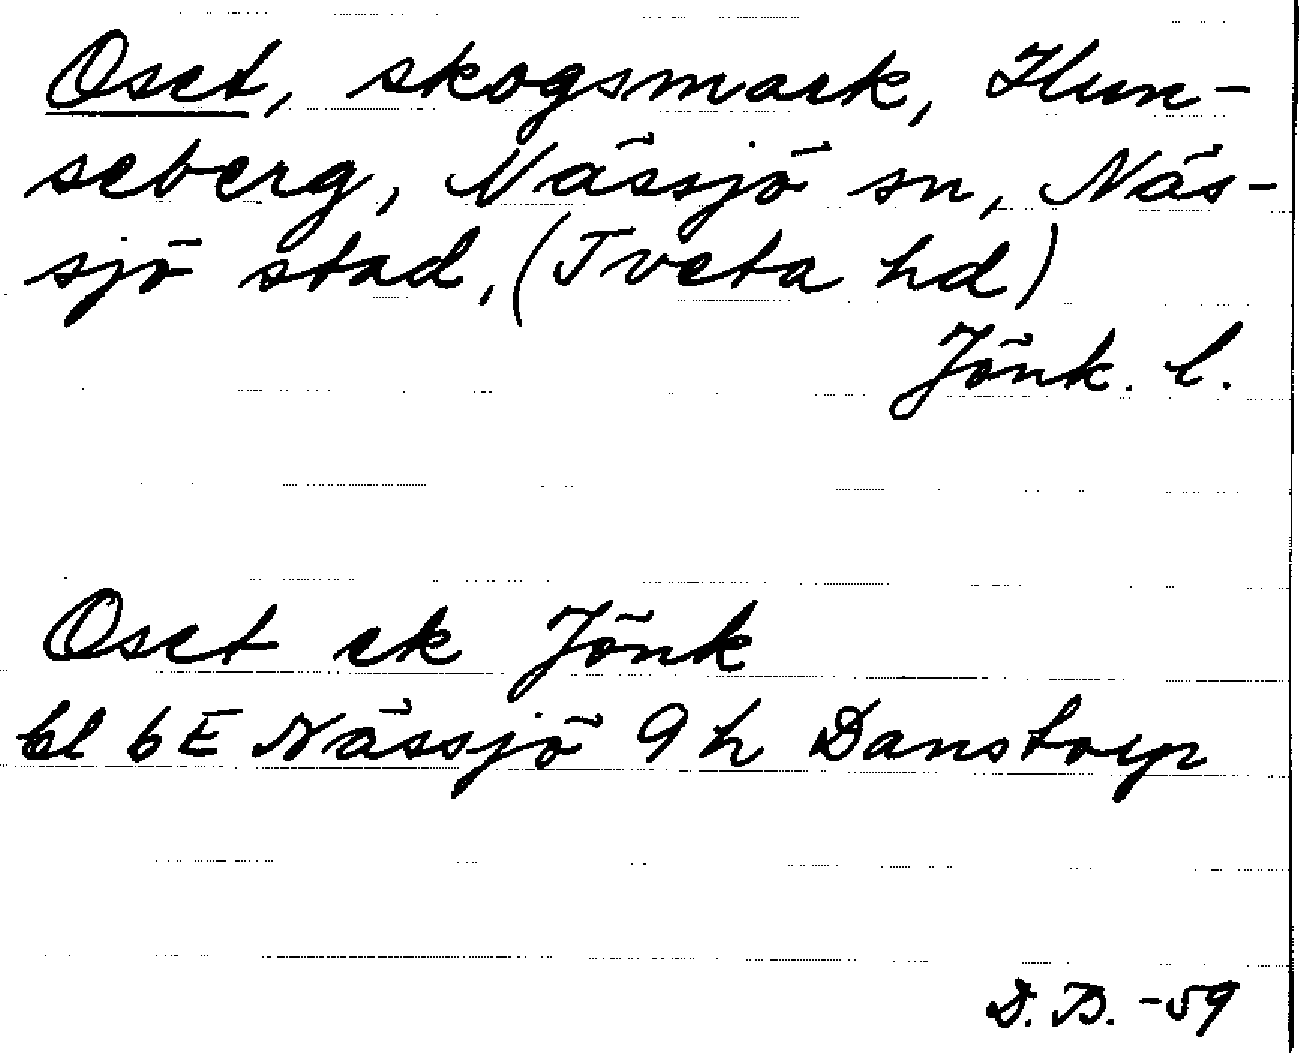 Oset, skogsmark, Hun-
seberg, Nässjö sn, Näs-
sjö stad, (Tveta hd)
Jönk. l.
Oset ek Jönk
bl 6E Nässjö 9 h Danstorp
D. B. -59